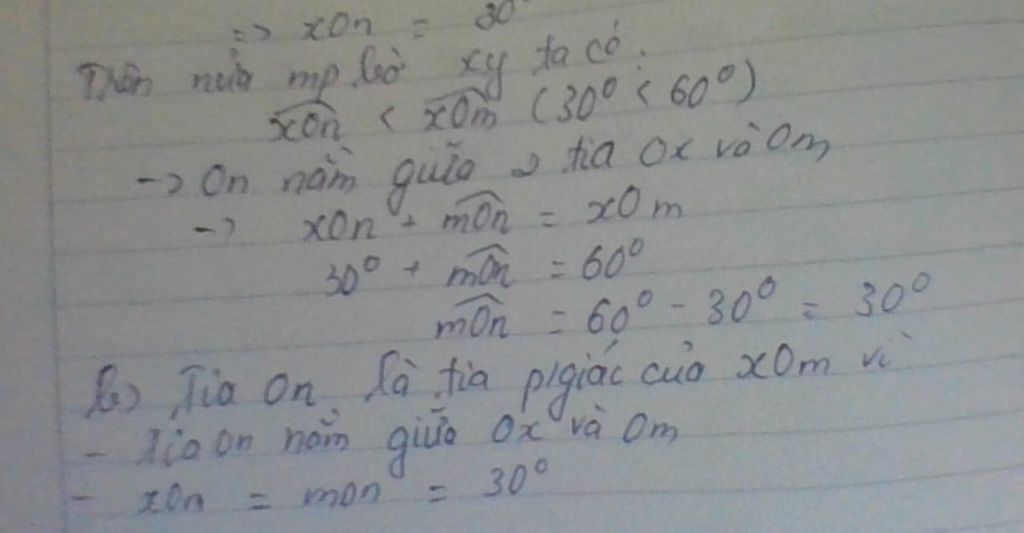 => xOn = 30°
Trên nửa mp bờ xy ta có:
xOn < xOm (30° < 60°)
-> On nằm giữa 2 tia Ox và Om
-> xOn + mOn = xOm
30° + mOn = 60°
mOn = 60° - 30° = 30°
b) Tia On là tia p/giác của xOm vì
- Tia On nằm giữa Ox và Om
- xOn = mOn = 30°